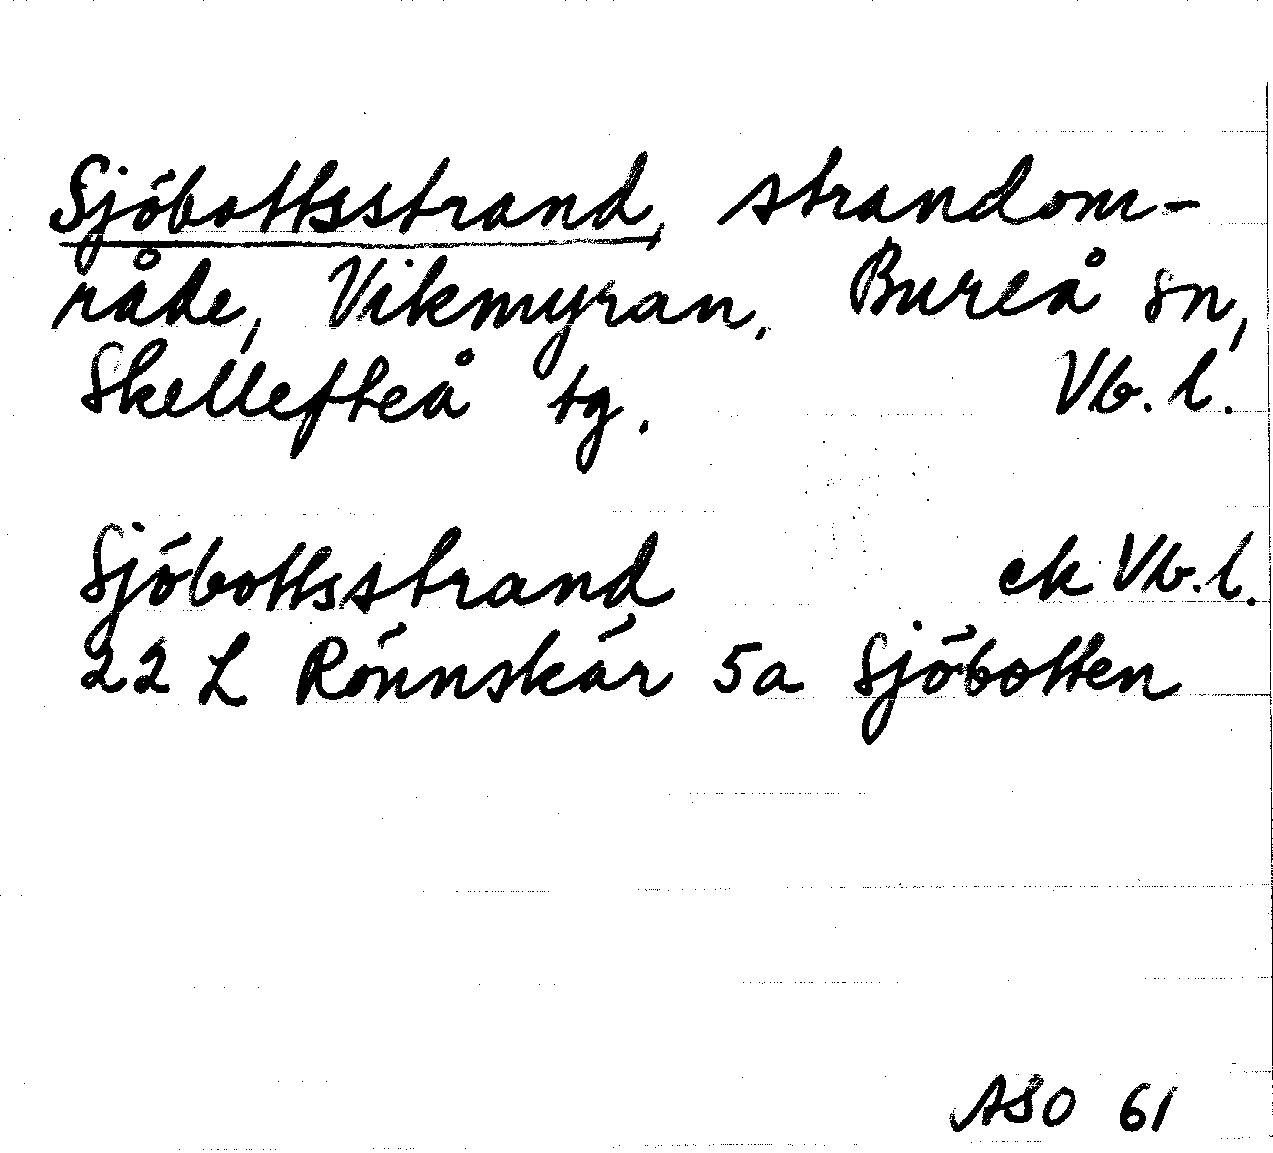 Sjöbottsstrand, strandom-
råde, Vikmyran, Bureå sn,
Skellefteå tg. Vb. l.
Sjöbottsstrand ek Vb. l.
22 L Rönnskär 5a Sjöbotten
ASO 61